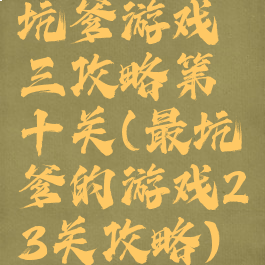 坑爹游戏
三攻略第
十关(最坑
爹的游戏2
3关攻略)